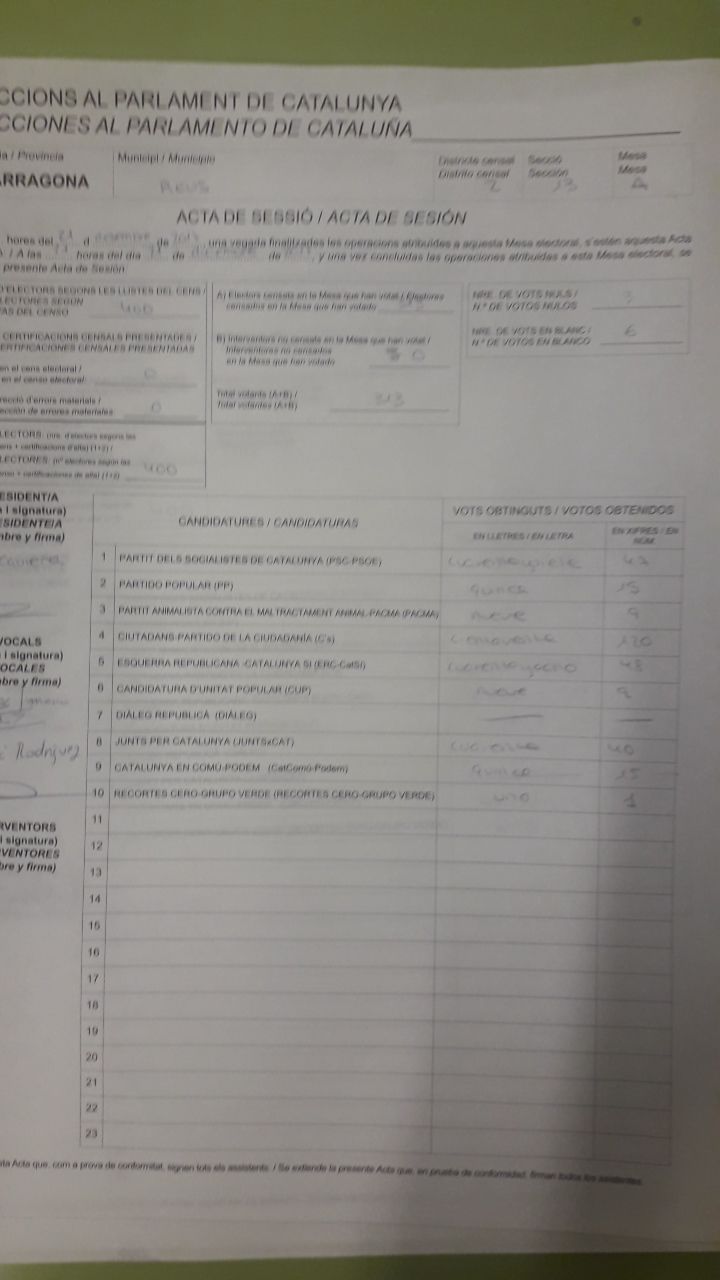 CCIONS AL PARLAMENT DE CATALUNYA
CCIONES AL PARLAMENTO DE CATALUÑA
ia / Provincia Municipi / Municipio Districte censal Secció Mesa
Distrito censal Sección Mesa
ARRAGONA REUS 2 13 A
ACTA DE SESSIÓ / ACTA DE SESIÓN
hores del d de una vegada finalitzades les operacions atribuïdes a aquesta Mesa electoral, s'estén aquesta Acta
/ A las horas del día de de , y una vez concluidas las operaciones atribuidas a esta Mesa electoral, se
presente Acta de Sesión
ELECTORS SEGONS LES LLISTES DEL CENS /
LECTORES SEGÚN
AS DEL CENSO 400
CERTIFICACIONS CENSALS PRESENTADES /
ERTIFICACIONES CENSALES PRESENTADAS
en el cens electoral /
en el censo electoral 0
recció d'errors materials /
ección de errores materiales 0
LECTORS (nre. d'electors segons les
ens + certificacions d'alta) (1+2) /
LECTORES (nº electores según las
censo + certificaciones de alta) (1+2) 400
A) Electors censats en la Mesa que han votat / Electores
censados en la Mesa que han votado
B) Interventors no censats en la Mesa que han votat /
Interventores no censados
en la Mesa que han votado 0
Total votants (A+B) /
Total votantes (A+B) 313
NRE. DE VOTS NULS /
N.º DE VOTOS NULOS 3
NRE. DE VOTS EN BLANC /
N.º DE VOTOS EN BLANCO 6
ESIDENT/A
i signatura)
ESIDENTE/A
mbre y firma)
VOCALS
i signatura)
OCALES
mbre y firma)
Rodríguez
RVENTORS
i signatura)
VENTORES
bre y firma)
CANDIDATURES / CANDIDATURAS VOTS OBTINGUTS / VOTOS OBTENIDOS
EN LLETRES / EN LETRA EN XIFRES / EN NÚM.
1 PARTIT DELS SOCIALISTES DE CATALUNYA (PSC-PSOE) 47
2 PARTIDO POPULAR (PP) quince 15
3 PARTIT ANIMALISTA CONTRA EL MALTRACTAMENT ANIMAL-PACMA (PACMA) nueve 9
4 CIUTADANS-PARTIDO DE LA CIUDADANÍA (C's) 120
5 ESQUERRA REPUBLICANA -CATALUNYA SÍ (ERC-CatSí) 48
6 CANDIDATURA D'UNITAT POPULAR (CUP) nueve 9
7 DIÀLEG REPUBLICÀ (DIÀLEG)
8 JUNTS PER CATALUNYA (JUNTSxCAT) cuarenta 40
9 CATALUNYA EN COMÚ-PODEM (CatComú-Podem) quince 15
10 RECORTES CERO-GRUPO VERDE (RECORTES CERO-GRUPO VERDE) uno 1
11
12
13
14
15
16
17
18
19
20
21
22
23
sta Acta que, com a prova de conformitat, signen tots els assistents. / Se extiende la presente Acta que, en prueba de conformidad, firman todos los asistentes.